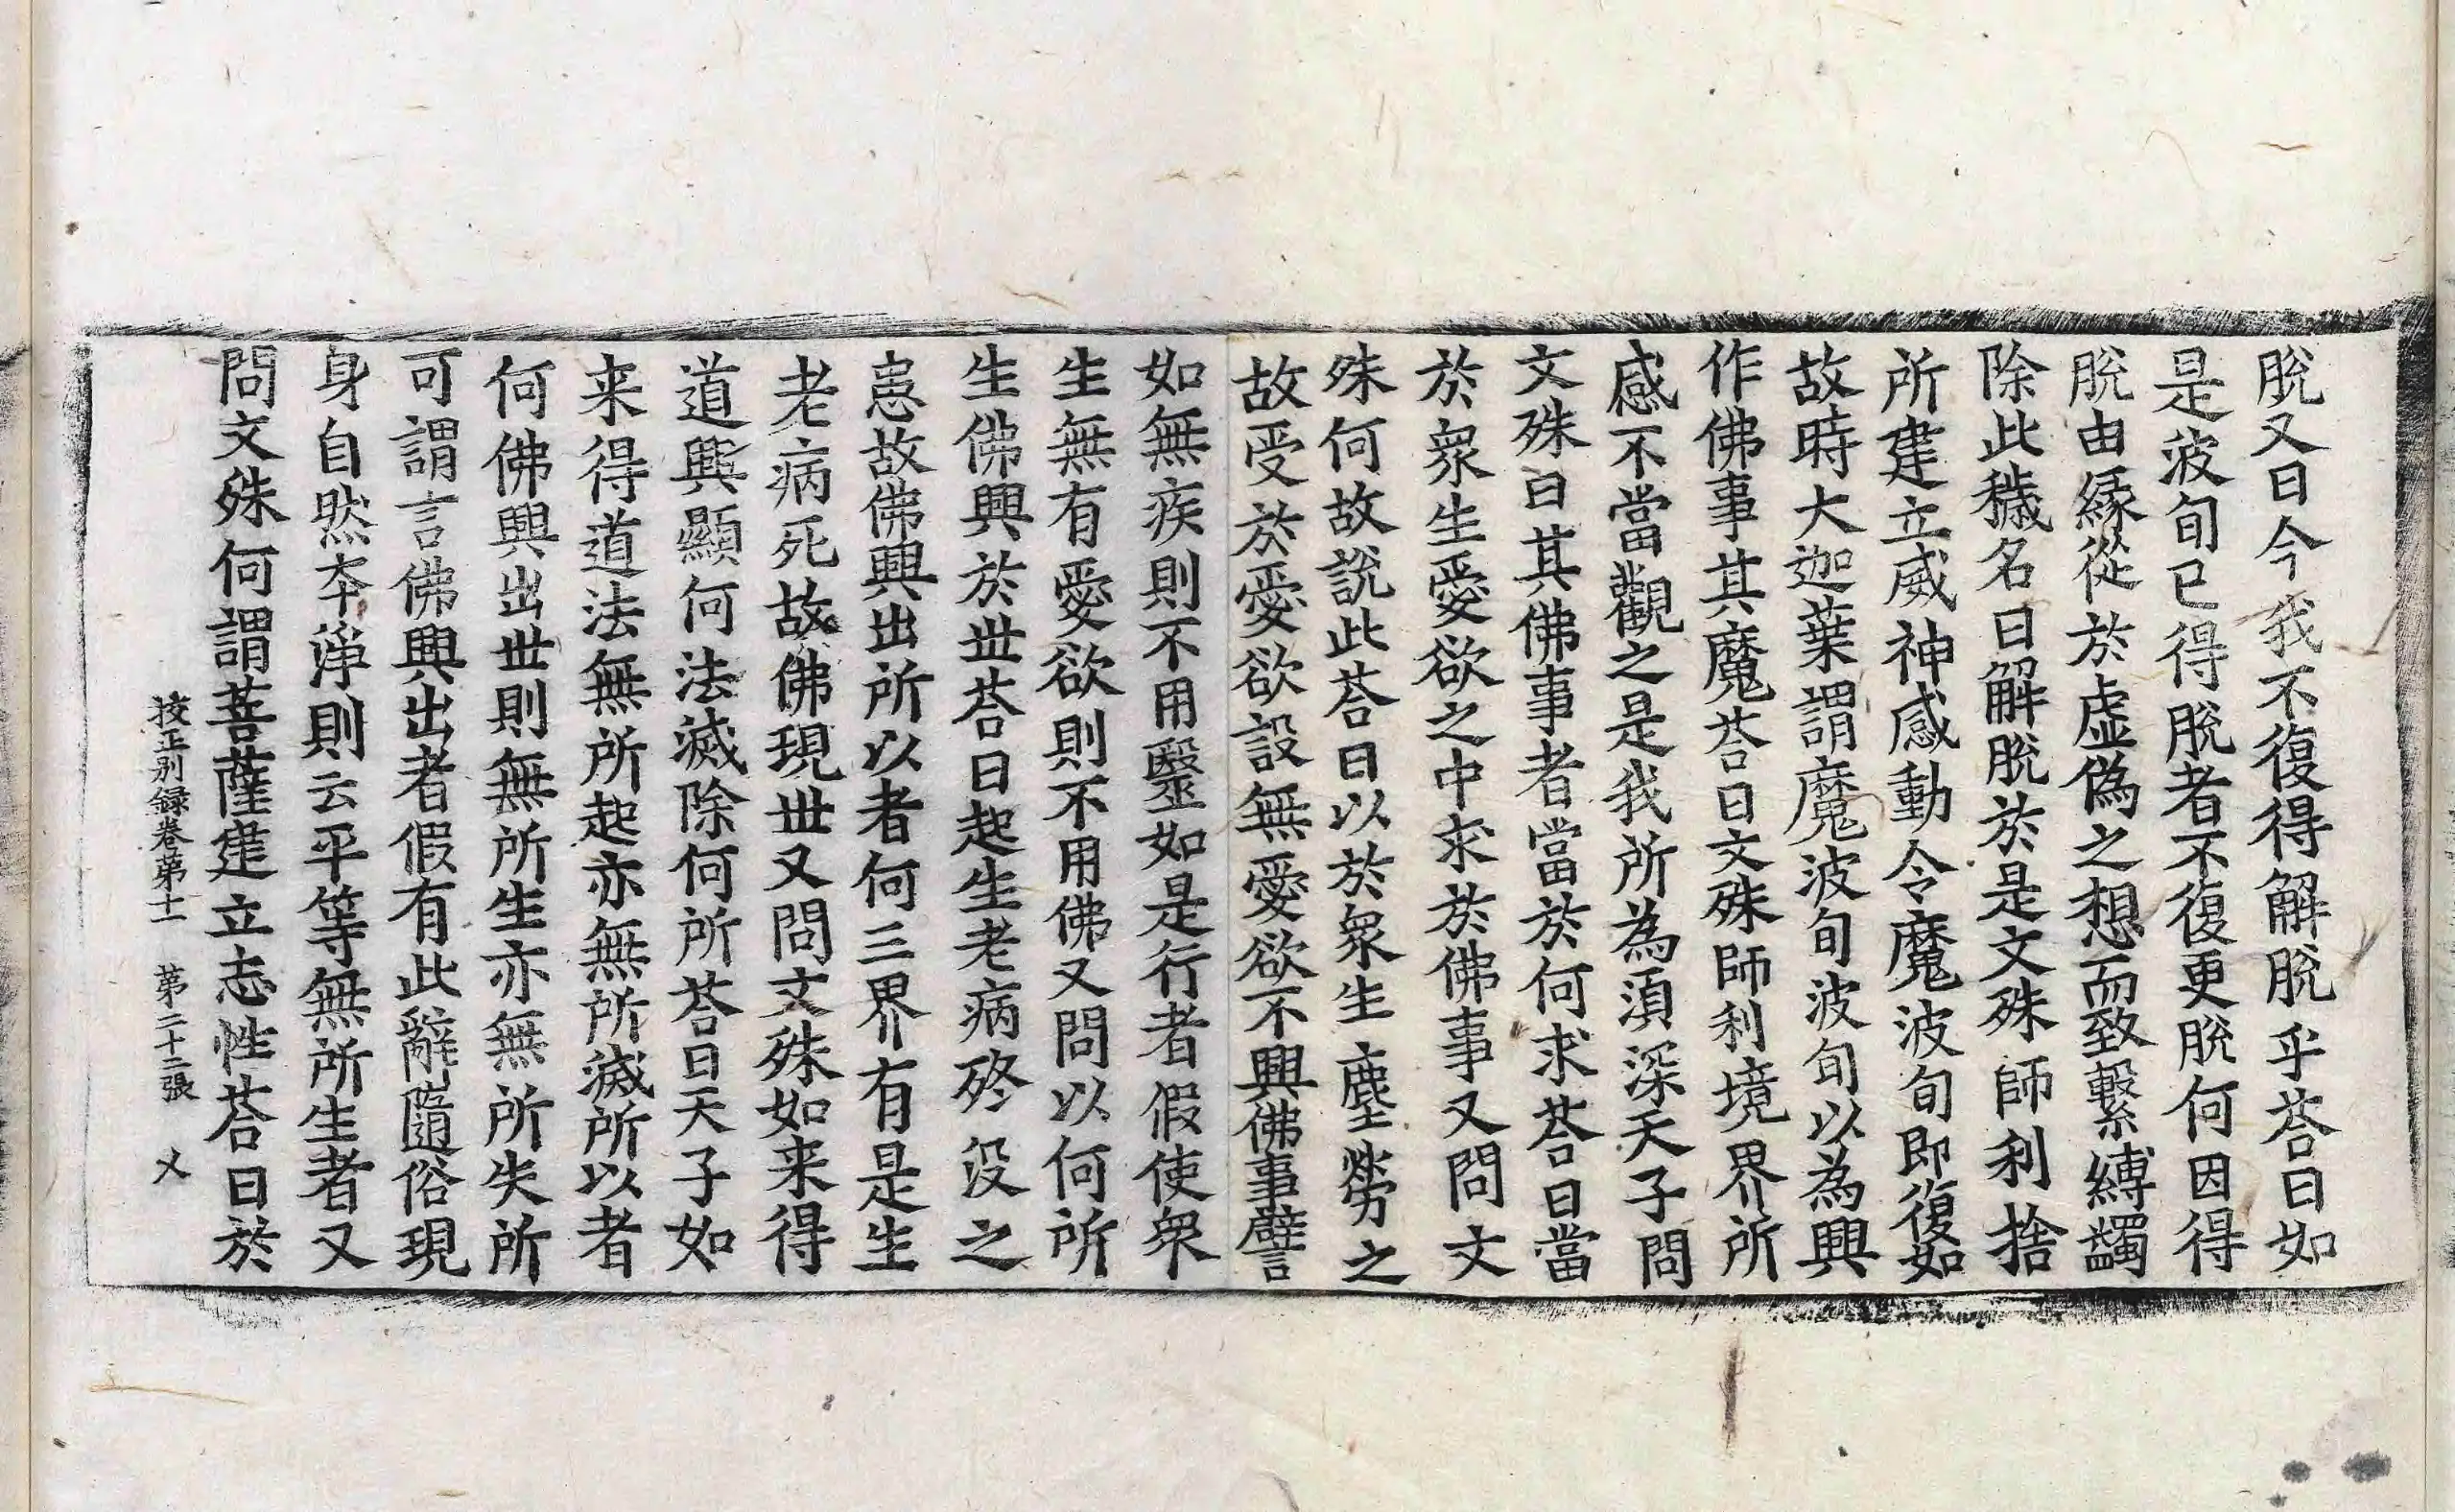 脫又曰今我不復得解脫乎荅曰如
是波旬已得脫者不復更脫何因得
脫由緣從於虛偽之想而致繫縛蠲
除此穢名曰解脫於是文殊師利捨
所建立威神感動令魔波旬即復如
故時大迦葉謂魔波旬波旬以為興
作佛事其魔荅曰文殊師利境界所
感不當觀之是我所為湏深天子問
文殊曰其佛事者當於何求荅曰當
於衆生愛欲之中求於佛事又問文
殊何故說此荅曰以於衆生塵勞之
故受於愛欲設無愛欲不興佛事譬
如無疾則不用毉如是行者假使衆
生無有愛欲則不用佛又問以何所
生佛興於丗荅曰起生老病終沒之
患故佛興出所以者何三界有是生
老病死故佛現丗又問文殊如来得
道興顯何法滅除何所荅曰天子如
来得道法無所起亦無所滅所以者
何佛興出丗則無所生亦無所失所
可謂言佛興出者假有此辭隨俗現
身自然夲淨則云平等無所生者又
問文殊何謂菩薩建立志性荅曰於
挍正別録卷苐十一　第二十二張　乂